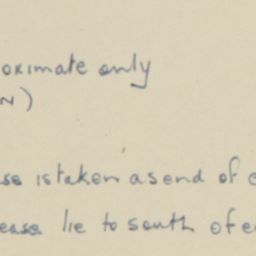 oximate only
N)
is taken as end of
ease lie to south of e